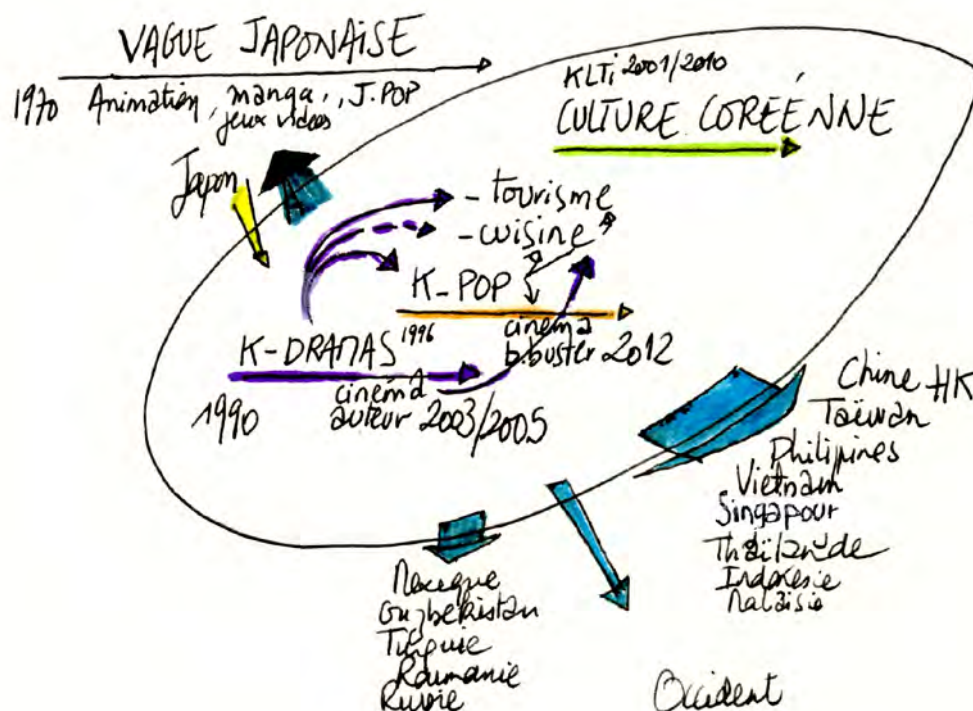 VAGUE JAPONAISE
1970 Animation, manga, J.POP
jeux vidéos
Japon
KLTi 2001/2010
CULTURE CORÉÉNNE
- tourisme
- cuisine
K-POP
cinéma
b.buster 2012
K-DRAMAS 1996
1990
cinéma
auteur 2003/2005
Chine HK
Taïwan
Philipines
Vietnam
Singapour
Thaïlande
Indonésie
Malaisie
Mexique
Ouzbékistan
Turquie
Roumanie
Russie
Occident